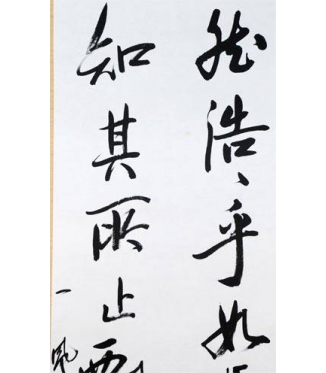 然浩〻乎如
知其所止